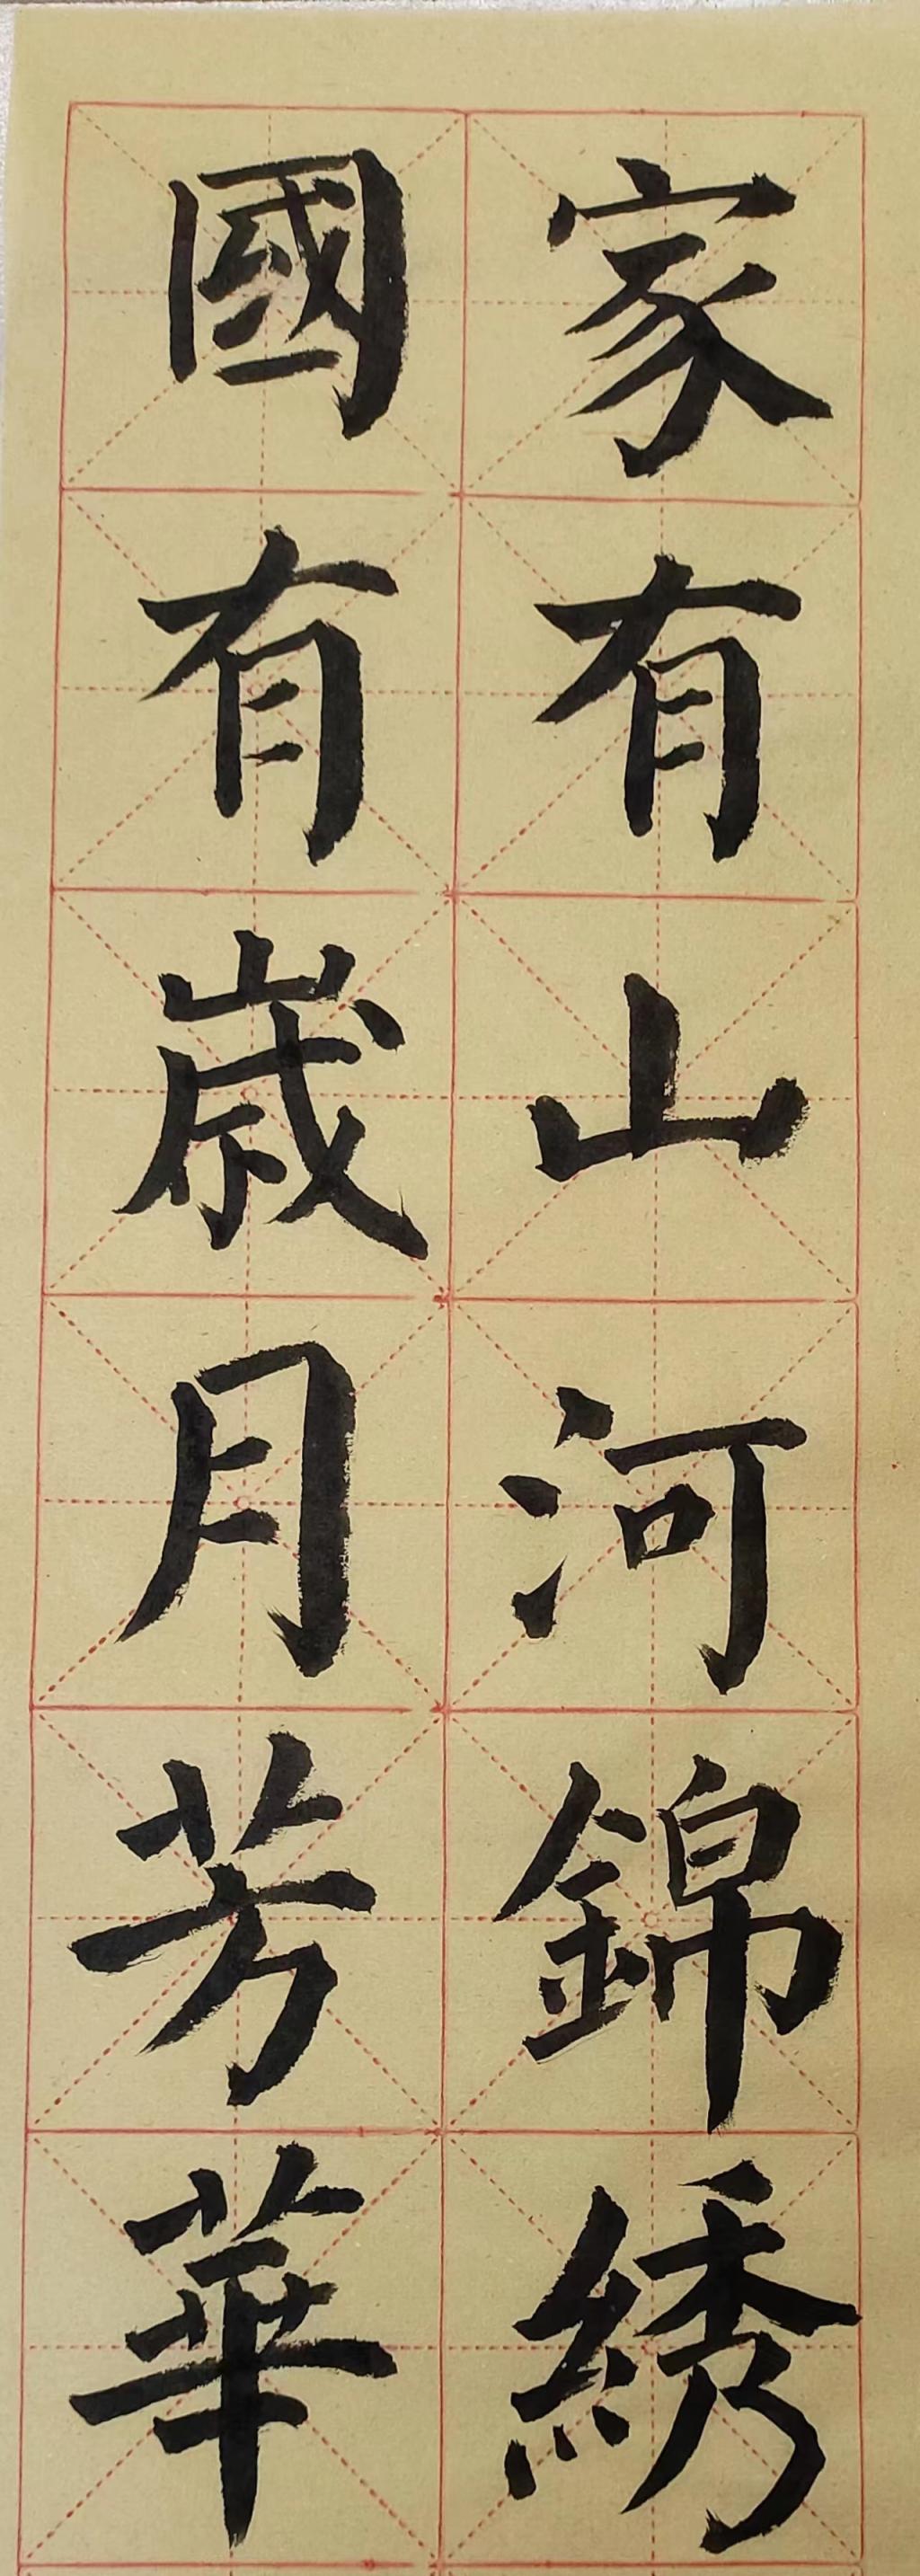 家有山河錦綉
國有歲月芳華